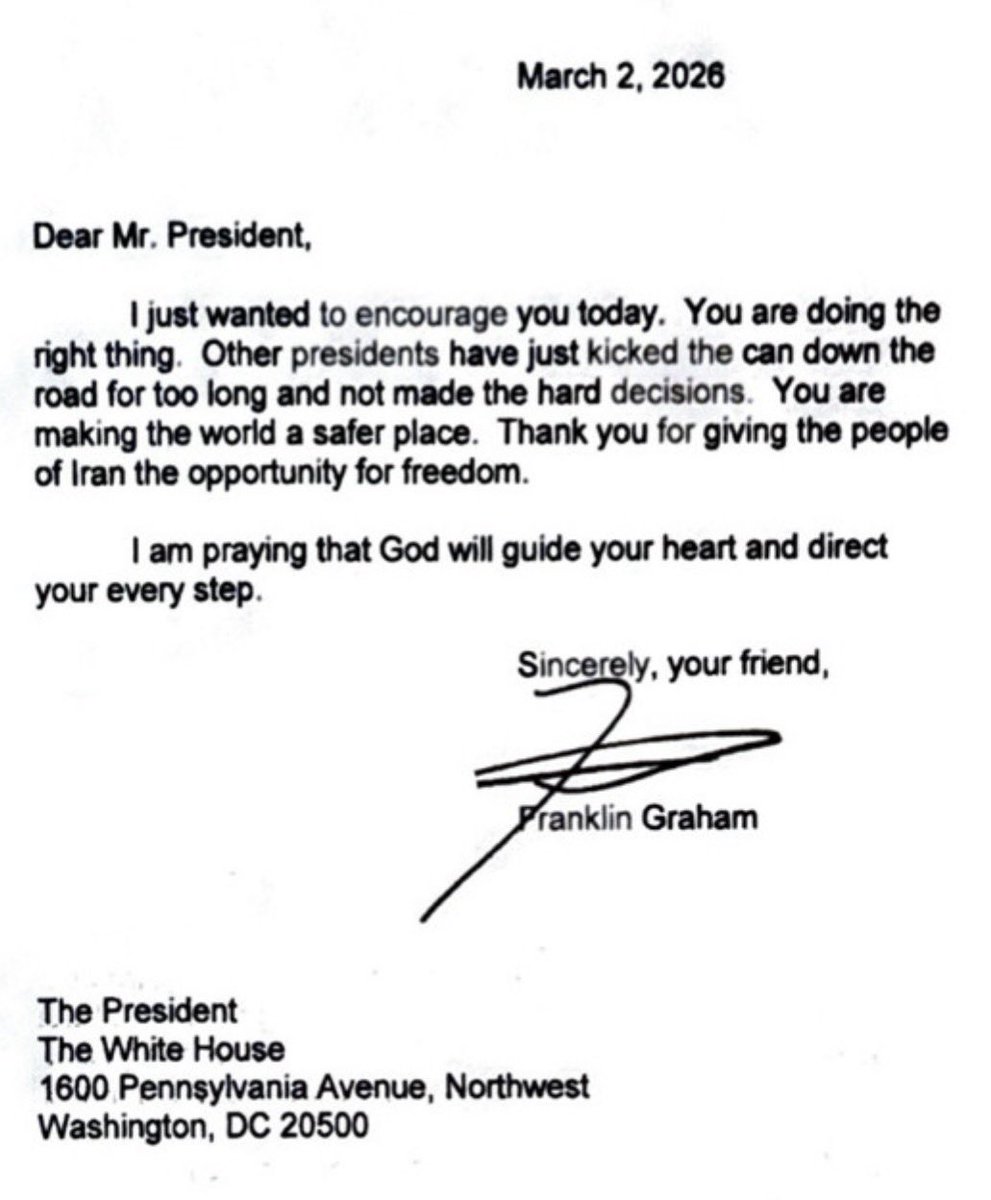 March 2, 2026
Dear Mr. President,
I just wanted to encourage you today. You are doing the
right thing. Other presidents have just kicked the can down the
road for too long and not made the hard decisions. You are
making the world a safer place. Thank you for giving the people
of Iran the opportunity for freedom.
I am praying that God will guide your heart and direct
your every step.
Sincerely, your friend,
Franklin Graham
The President
The White House
1600 Pennsylvania Avenue, Northwest
Washington, DC 20500